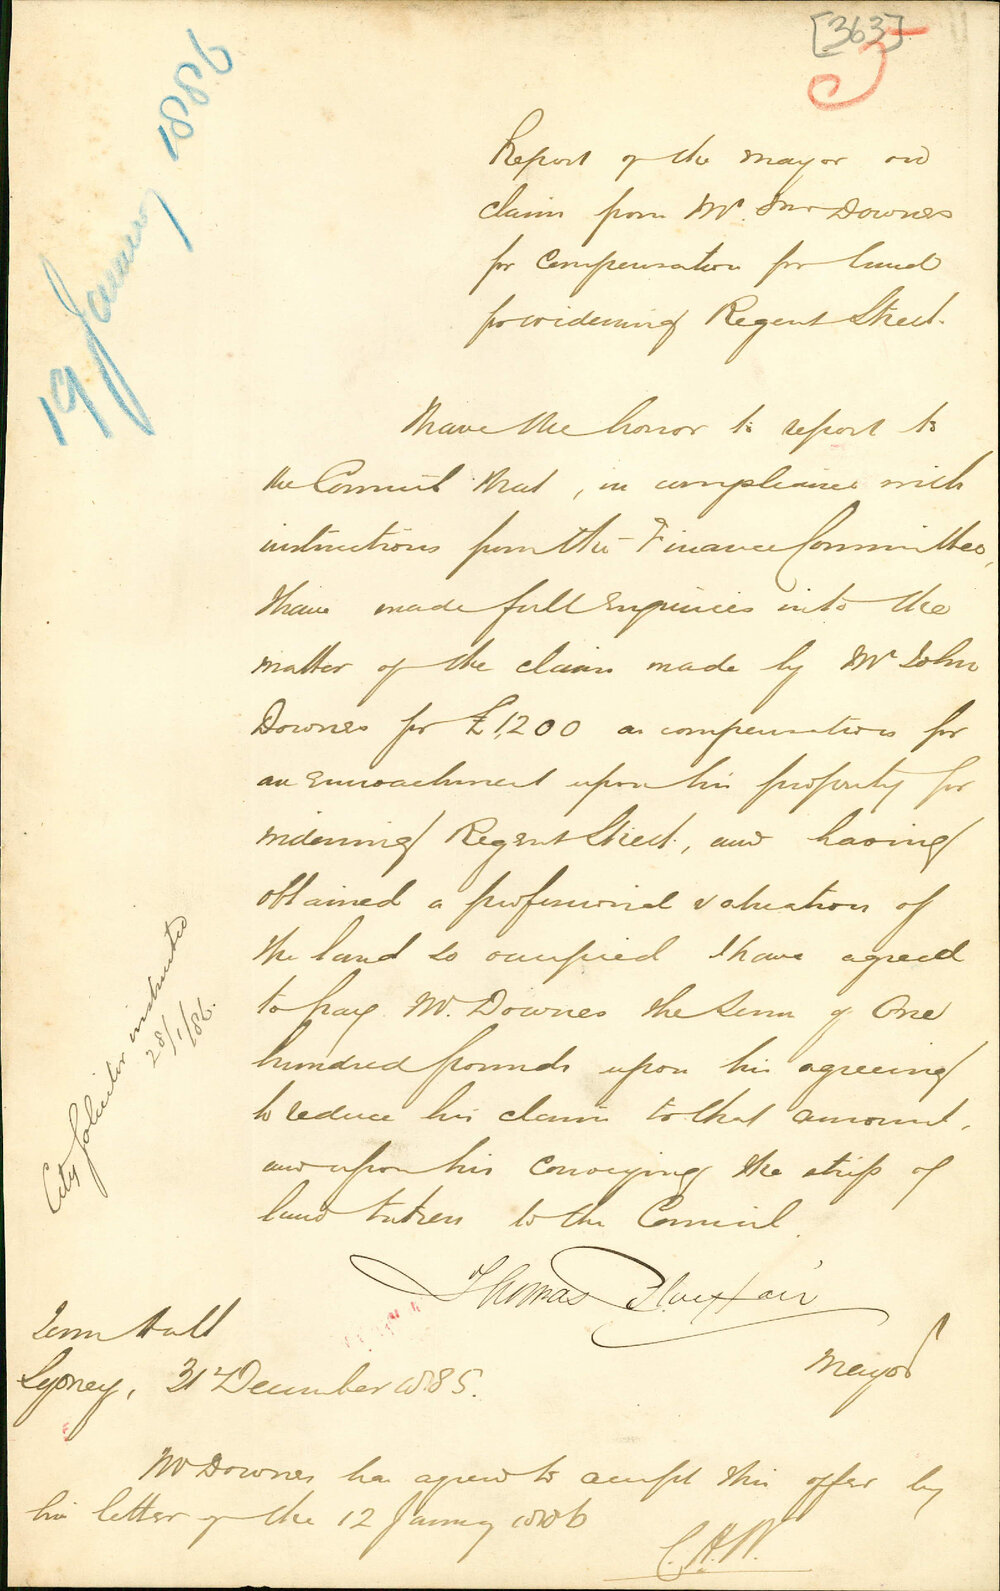 [363]
5
19 January 1886
Report of the Mayor on
claim from Mr. Jno Downes
for compensation for land
for widening Regent Street.
I have the honor to report to
the Council that, in compliance with
instructions from the Finance Committee,
I have made full enquiries into the
matter of the claim made by Mr John
Downes for £1,200 as compensation for
an encroachment upon his property for
widening Regent Street, and having
obtained a professional valuation of
the land so occupied I have agreed
to pay Mr. Downes the sum of One
hundred pounds upon his agreeing
to reduce his claim to that amount,
and upon his conveying the strip of
land taken to the Council.
Thomas Playfair
Mayor
Town Hall
Sydney, 31st December 1885.
City Solicitor instructed
28/1/86.
Mr Downes has agreed to accept this offer by
his letter of the 12 January 1886
C.H.W.